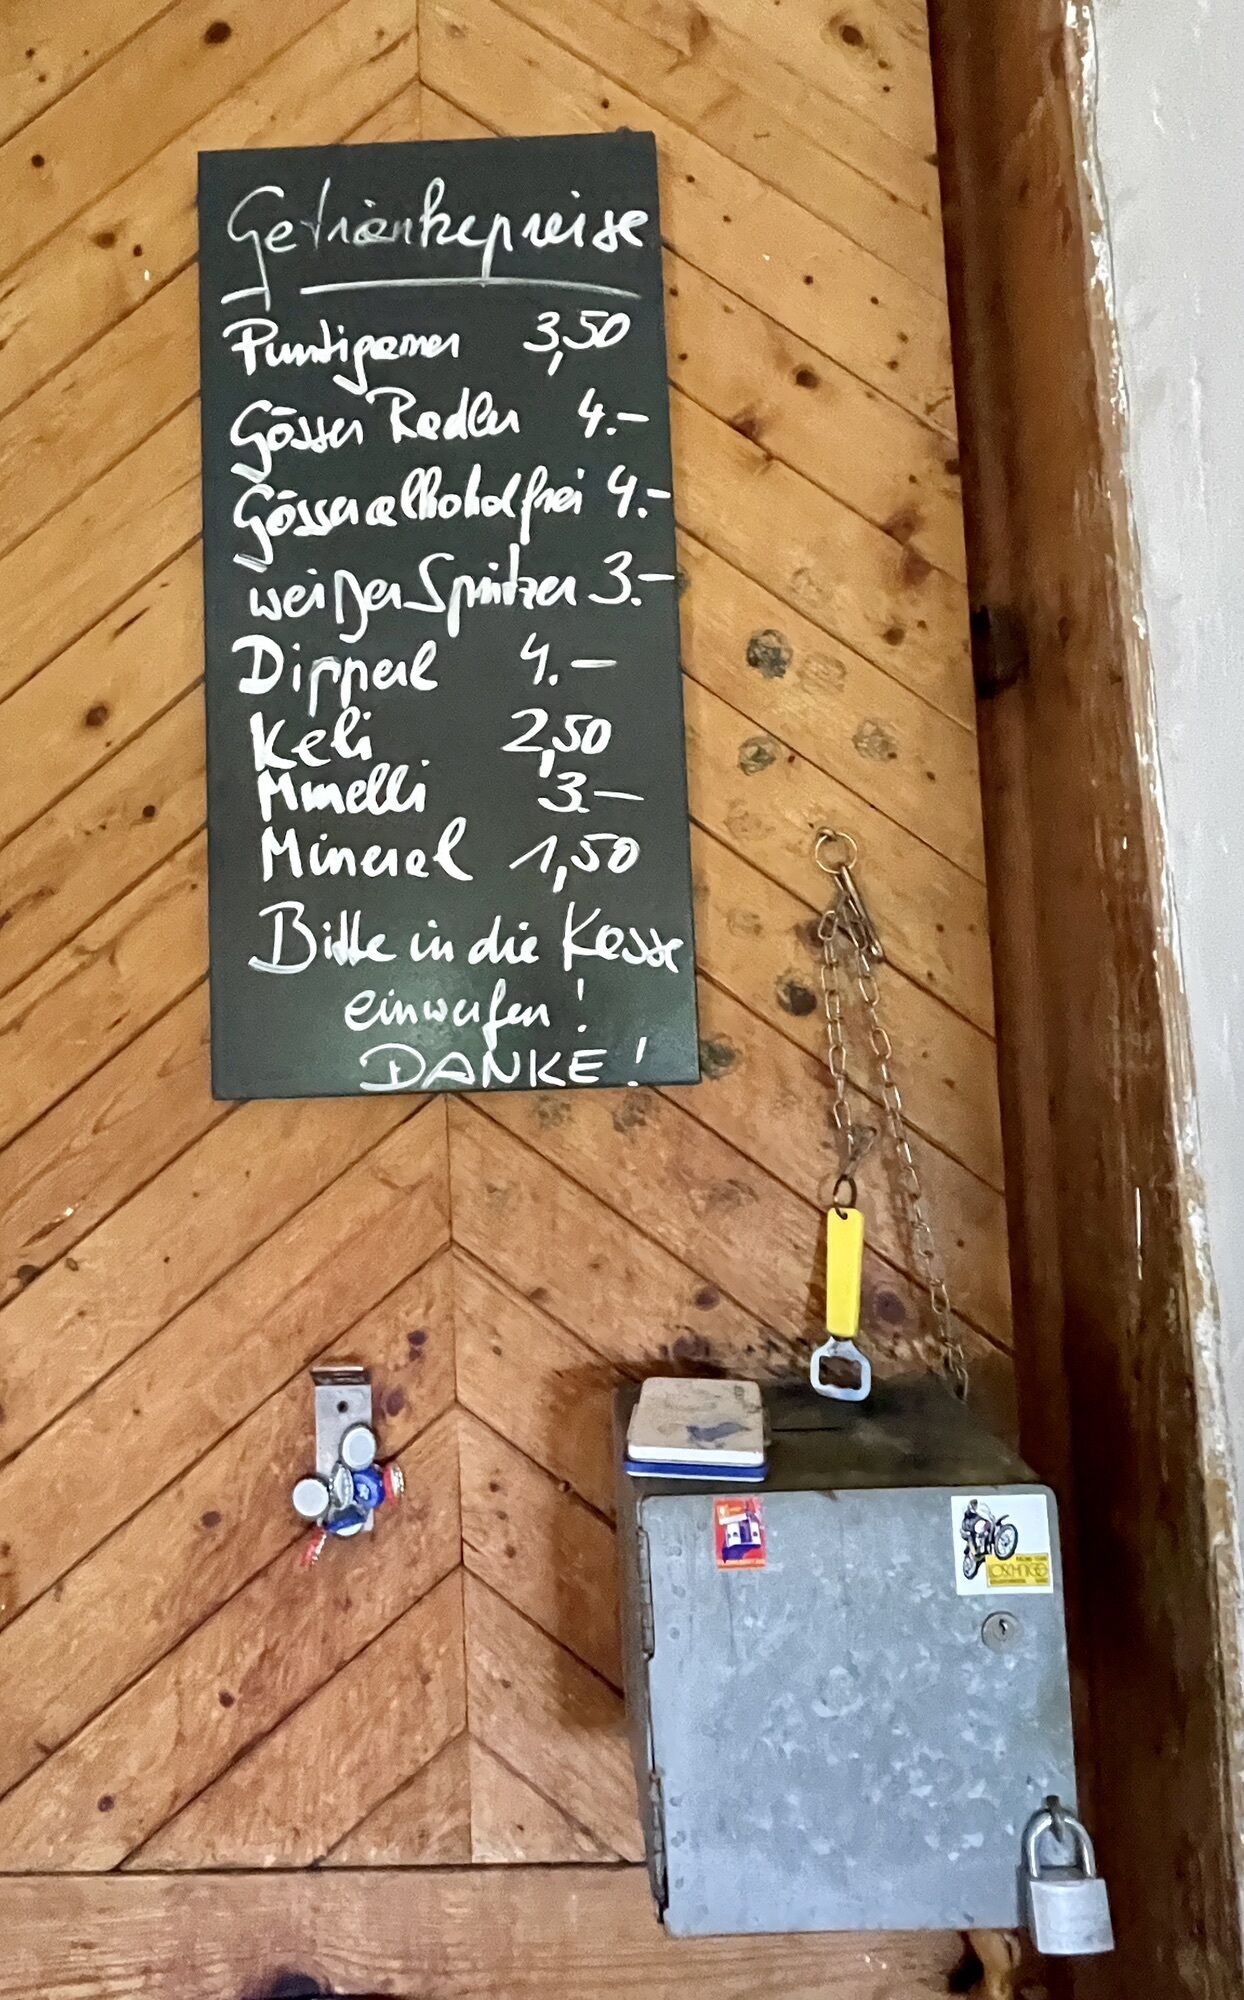 Getränkepreise
Puntigamer 3,50
Gösser Radler 4.-
Gösser alkoholfrei 4.-
weißer Spritzer 3.-
Dipperl 4.-
Keli 2,50
Minelli 3.-
Mineral 1,50
Bitte in die Kassa
einwerfen!
DANKE!